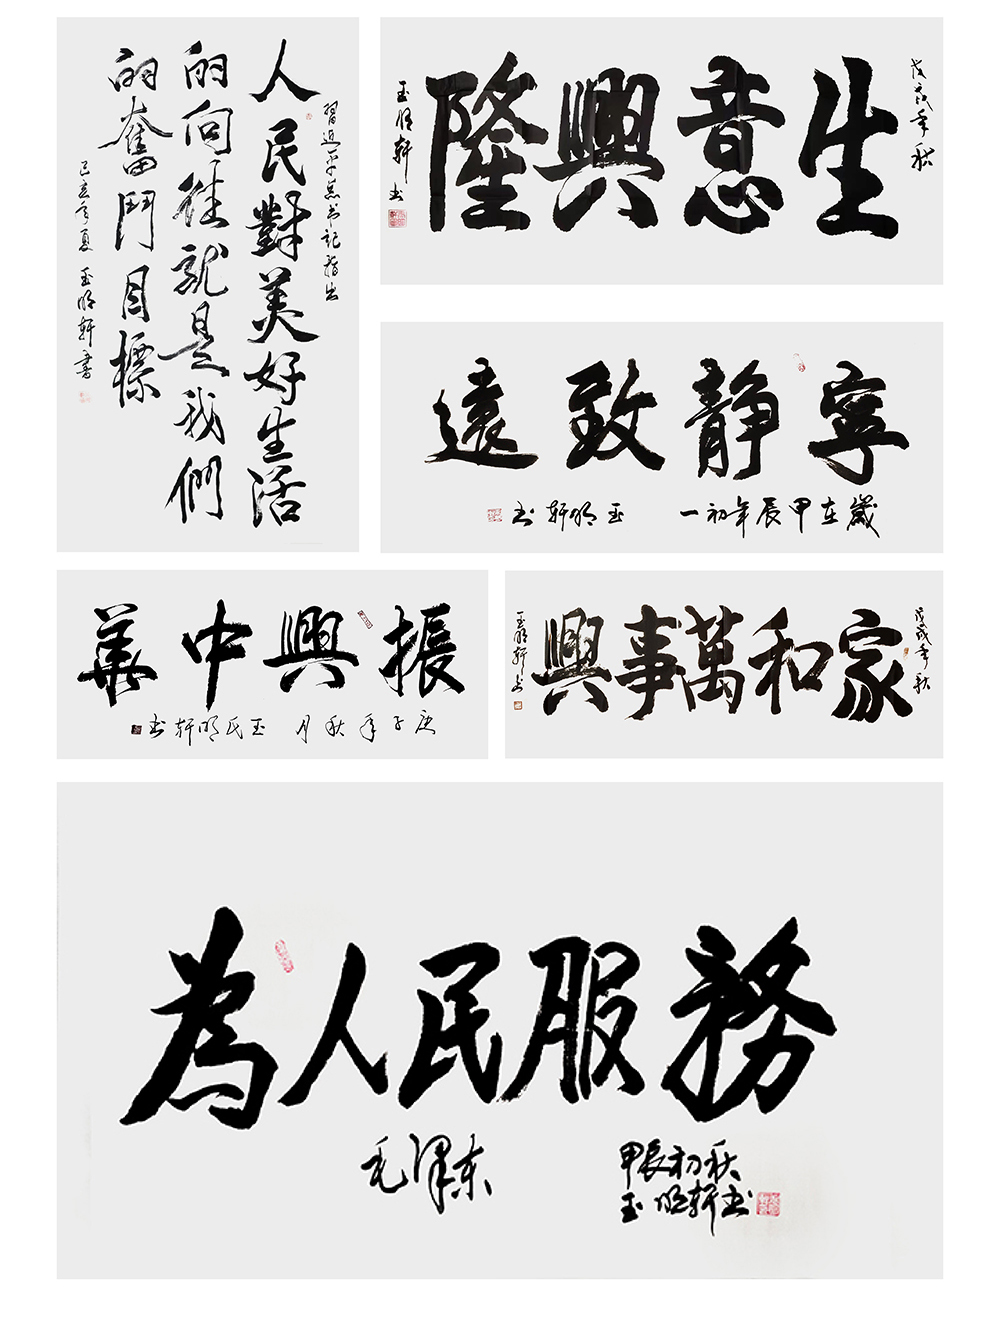 習近平总书记指出
人民對美好生活
的向往就是我們
的奮鬥目標
己亥年夏 玉明軒書
戊戌年秋
生意興隆
玉明軒书
寧靜致遠
歲在甲辰年初一 玉明軒书
振興中華
庚子年秋月 玉氏明軒书
戊戌年秋
家和萬事興
玉明軒书
為人民服務
毛澤东
甲辰初秋
玉明軒书